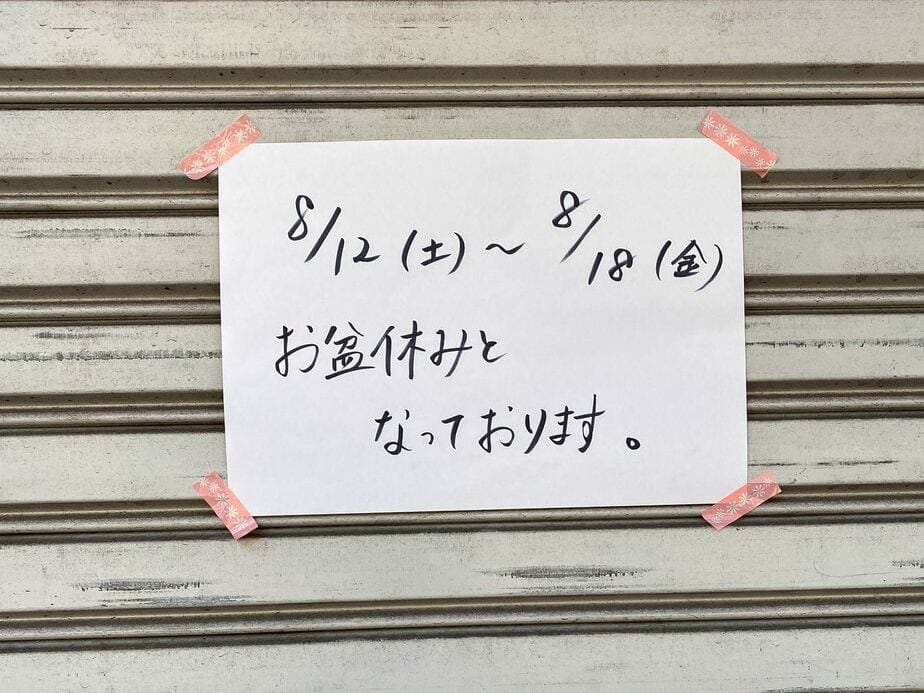 8/12(土)～8/18(金)
お盆休みと
なっております。